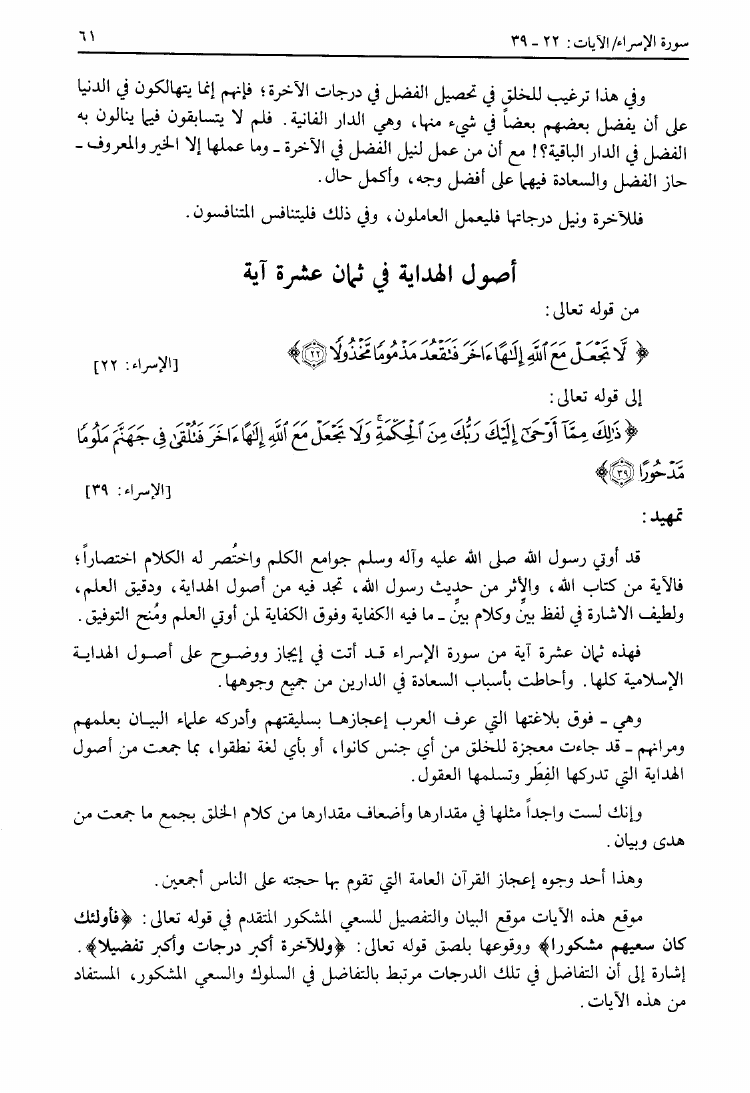 سورة الإسراء/الآيات: ٢٢ - ٣٩
٦١
وفي هذا ترغيب للخلق في تحصيل الفضل في درجات الآخرة؛ فإنهم إنما يتهالكون في الدنيا
على أن يفضل بعضهم بعضاً في شيء منها، وهي الدار الفانية. فلم لا يتسابقون فيما ينالون به
الفضل في الدار الباقية؟! مع أن من عمل لنيل الفضل في الآخرة - وما عملها إلا الخير والمعروف -
حاز الفضل والسعادة فيهما على أفضل وجه، وأكمل حال.
فللآخرة ونيل درجاتها فليعمل العاملون، وفي ذلك فليتنافس المتنافسون.
أصول الهداية في ثمان عشرة آية
من قوله تعالى:
﴿ لَّا تَجْعَلْ مَعَ ٱللَّهِ إِلَـٰهًا ءَاخَرَ فَتَقْعُدَ مَذْمُومًا مَّخْذُولًا ٢٢﴾
[الإسراء: ٢٢]
إلى قوله تعالى:
﴿ ذَٰلِكَ مِمَّآ أَوْحَىٰٓ إِلَيْكَ رَبُّكَ مِنَ ٱلْحِكْمَةِ ۗ وَلَا تَجْعَلْ مَعَ ٱللَّهِ إِلَـٰهًا ءَاخَرَ فَتُلْقَىٰ فِى جَهَنَّمَ مَلُومًا
مَّدْحُورًا ٣٩﴾
[الإسراء: ٣٩]
تمهيد:
قد أوتي رسول الله صلى الله عليه وآله وسلم جوامع الكلم واختُصر له الكلام اختصاراً؛
فالآية من كتاب الله، والأثر من حديث رسول الله، تجد فيه من أصول الهداية، ودقيق العلم،
ولطيف الاشارة في لفظ بينٍّ وكلام بينٍّ - ما فيه الكفاية وفوق الكفاية لمن أوتي العلم ومُنح التوفيق.
فهذه ثمان عشرة آية من سورة الإسراء قد أتت في إيجاز ووضوح على أصول الهداية
الإسلامية كلها. وأحاطت بأسباب السعادة في الدارين من جميع وجوهها.
وهي - فوق بلاغتها التي عرف العرب إعجازها بسليقتهم وأدركه علماء البيان بعلمهم
ومرانهم - قد جاءت معجزة للخلق من أي جنس كانوا، أو بأي لغة نطقوا، بما جمعت من أصول
الهداية التي تدركها الفِطَر وتسلمها العقول.
وإنك لست واجداً مثلها في مقدارها وأضعاف مقدارها من كلام الخلق بجمع ما جمعت من
هدى وبيان.
وهذا أحد وجوه إعجاز القرآن العامة التي تقوم بها حجته على الناس أجمعين.
موقع هذه الآيات موقع البيان والتفصيل للسعي المشكور المتقدم في قوله تعالى: ﴿فأولئك
كان سعيهم مشكورا﴾ ووقوعها بلصق قوله تعالى: ﴿وللآخرة أكبر درجات وأكبر تفضيلا﴾.
إشارة إلى أن التفاضل في تلك الدرجات مرتبط بالتفاضل في السلوك والسعي المشكور، المستفاد
من هذه الآيات.